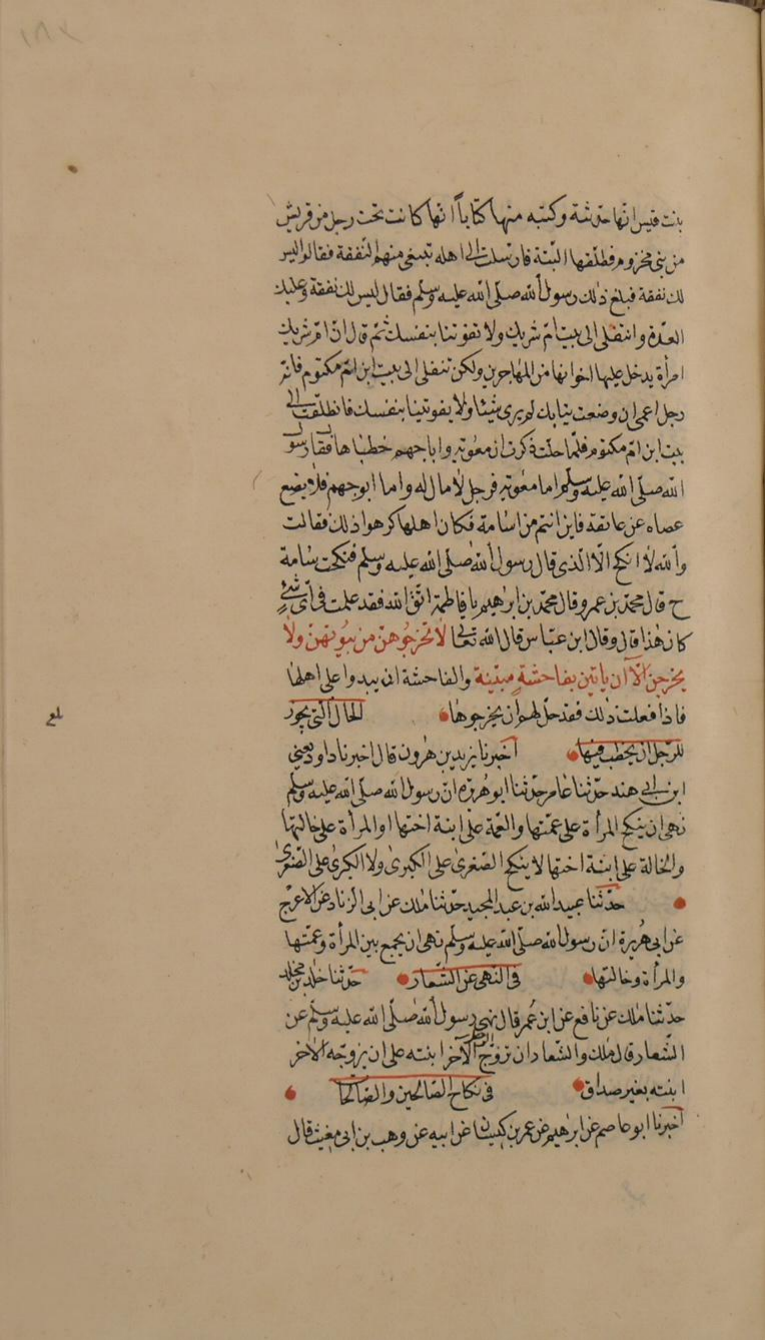 ١٨٢
بنت قيس انها حدثته وكتبه منها كتاباً انها كانت تحت رجل من قريش
من بنى مخزوم فطلقها البتة فارسلت الى اهله تبتغى منهم النفقة فقالوا ليس
لك نفقة فبلغ ذلك رسول الله صلى الله عليه وسلم فقال ليس لك نفقة وعليك
العدة وانتقلى الى بيت ام شريك ولا تفوتنا بنفسك ثم قال ان ام شريك
امرأة يدخل عليها اخوانها من المهاجرين ولكن تنقلى الى بيت ابن ام مكتوم فانه
رجل اعمى ان وضعت ثيابك لم يرى شيئا ولا يفوتينا بنفسك فانطلقت الى
بيت ابن ام مكتوم فلما حلت ذكرت ان معوية واباجهم خطباها فقال رسول
الله صلى الله عليه وسلم اما معوية فرجل لا مال له واما ابوجهم فلا يضع
عصاه عن عاتقه فاين انتم من اسامة فكان اهلها كرهوا ذلك فقالت
والله لا انكح الا الذى قال رسول الله صلى الله عليه وسلم فنكحت سامة
ح قال محمد بن عمرو قال محمد بن ابرهيم يا فاطمة اتق الله فقد علمت فى أى شئ
كان هذا قال وقال ابن عباس قال الله تعالى لا تخرجوهن من بيوتهن ولا
يخرجن الا أن يأتين بفاحشة مبينة والفاحشة ان يبدوا على اهلها
فاذا فعلت ذلك فقد حل لهم ان يخرجوها الحال التى يجوز
بلغ
للرجل ان يخطب فيها أخبرنا يزيد بن هرون قال اخبرنا داود يعنى
ابن ابى هند حدثنا عامر حدثنا ابو هريرة ان رسول الله صلى الله عليه وسلم
نهى ان ينكح المرأة على عمتها والعمة على ابنة اختها او المرأة على خالتها
والخالة على ابنة اختها لا ينكح الصغرى على الكبرى ولا الكبرى على الصغرى
حدثنا عبيد الله بن عبد المجيد حدثنا ملك عن ابى الزناد عن الاعرج
عن ابى هريرة ان رسول الله صلى الله عليه وسلم نهى ان يجمع بين المرأة وعمتها
والمرأة وخالتها فى النهى عن الشغار حدثنا خلد بن مخلد
حدثنا ملك عن نافع عن ابن عمر قال نهى رسول الله صلى الله عليه وسلم عن
الشغار قال ملك والشغار ان تزوج الرجل الآخر ابنته على ان يزوجه الاخر
ابنته بغير صداق فى نكاح الصالحين والصالحات
أخبرنا ابو عاصم عن ابرهيم عن عمر بن كيسان عن ابيه عن وهب بن ابى مغيث قال